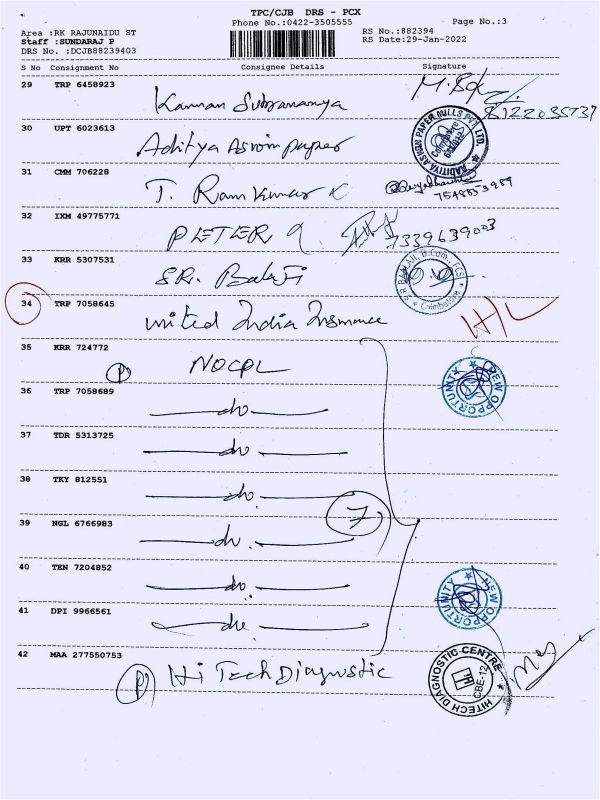 TPC/CJB DRS - PCX
Phone No.:0422-3505555 Page No.:3
Area :RK RAJUNAIDU ST RS No.:882394
Staff :SUNDARAJ P RS Date:29-Jan-2022
DRS No. :DCJB88239403
S No Consignment No Consignee Details Signature
29 TRP 6458923
Kannan Subramanya 8122035737
30 UPT 6023613
Aditya Aswin paper AADITYA ASWIN PAPER MILLS PVT LTD. Coimbatore
31 CMM 706228
T. Ram Kumar 7548853989
32 IXM 49775771
PLETER 7339639003
33 KRR 5307531
S.R. Balaji S R BALAJI, B.Com, FCS Coimbatore
34 TRP 7058645
United India Insurance
35 KRR 724772
P NOCPL NEW OPPORTUNITY
36 TRP 7058689
do
37 TDR 5313725
do
38 TKY 812551
do 7
39 NGL 6766983
do
40 TEN 7204852
do NEW OPPORTUNITY
41 DPI 9966561
do
42 MAA 277550753
P Hi Tech Diagnostic HITECH DIAGNOSTIC CENTRE Hi CBE-12